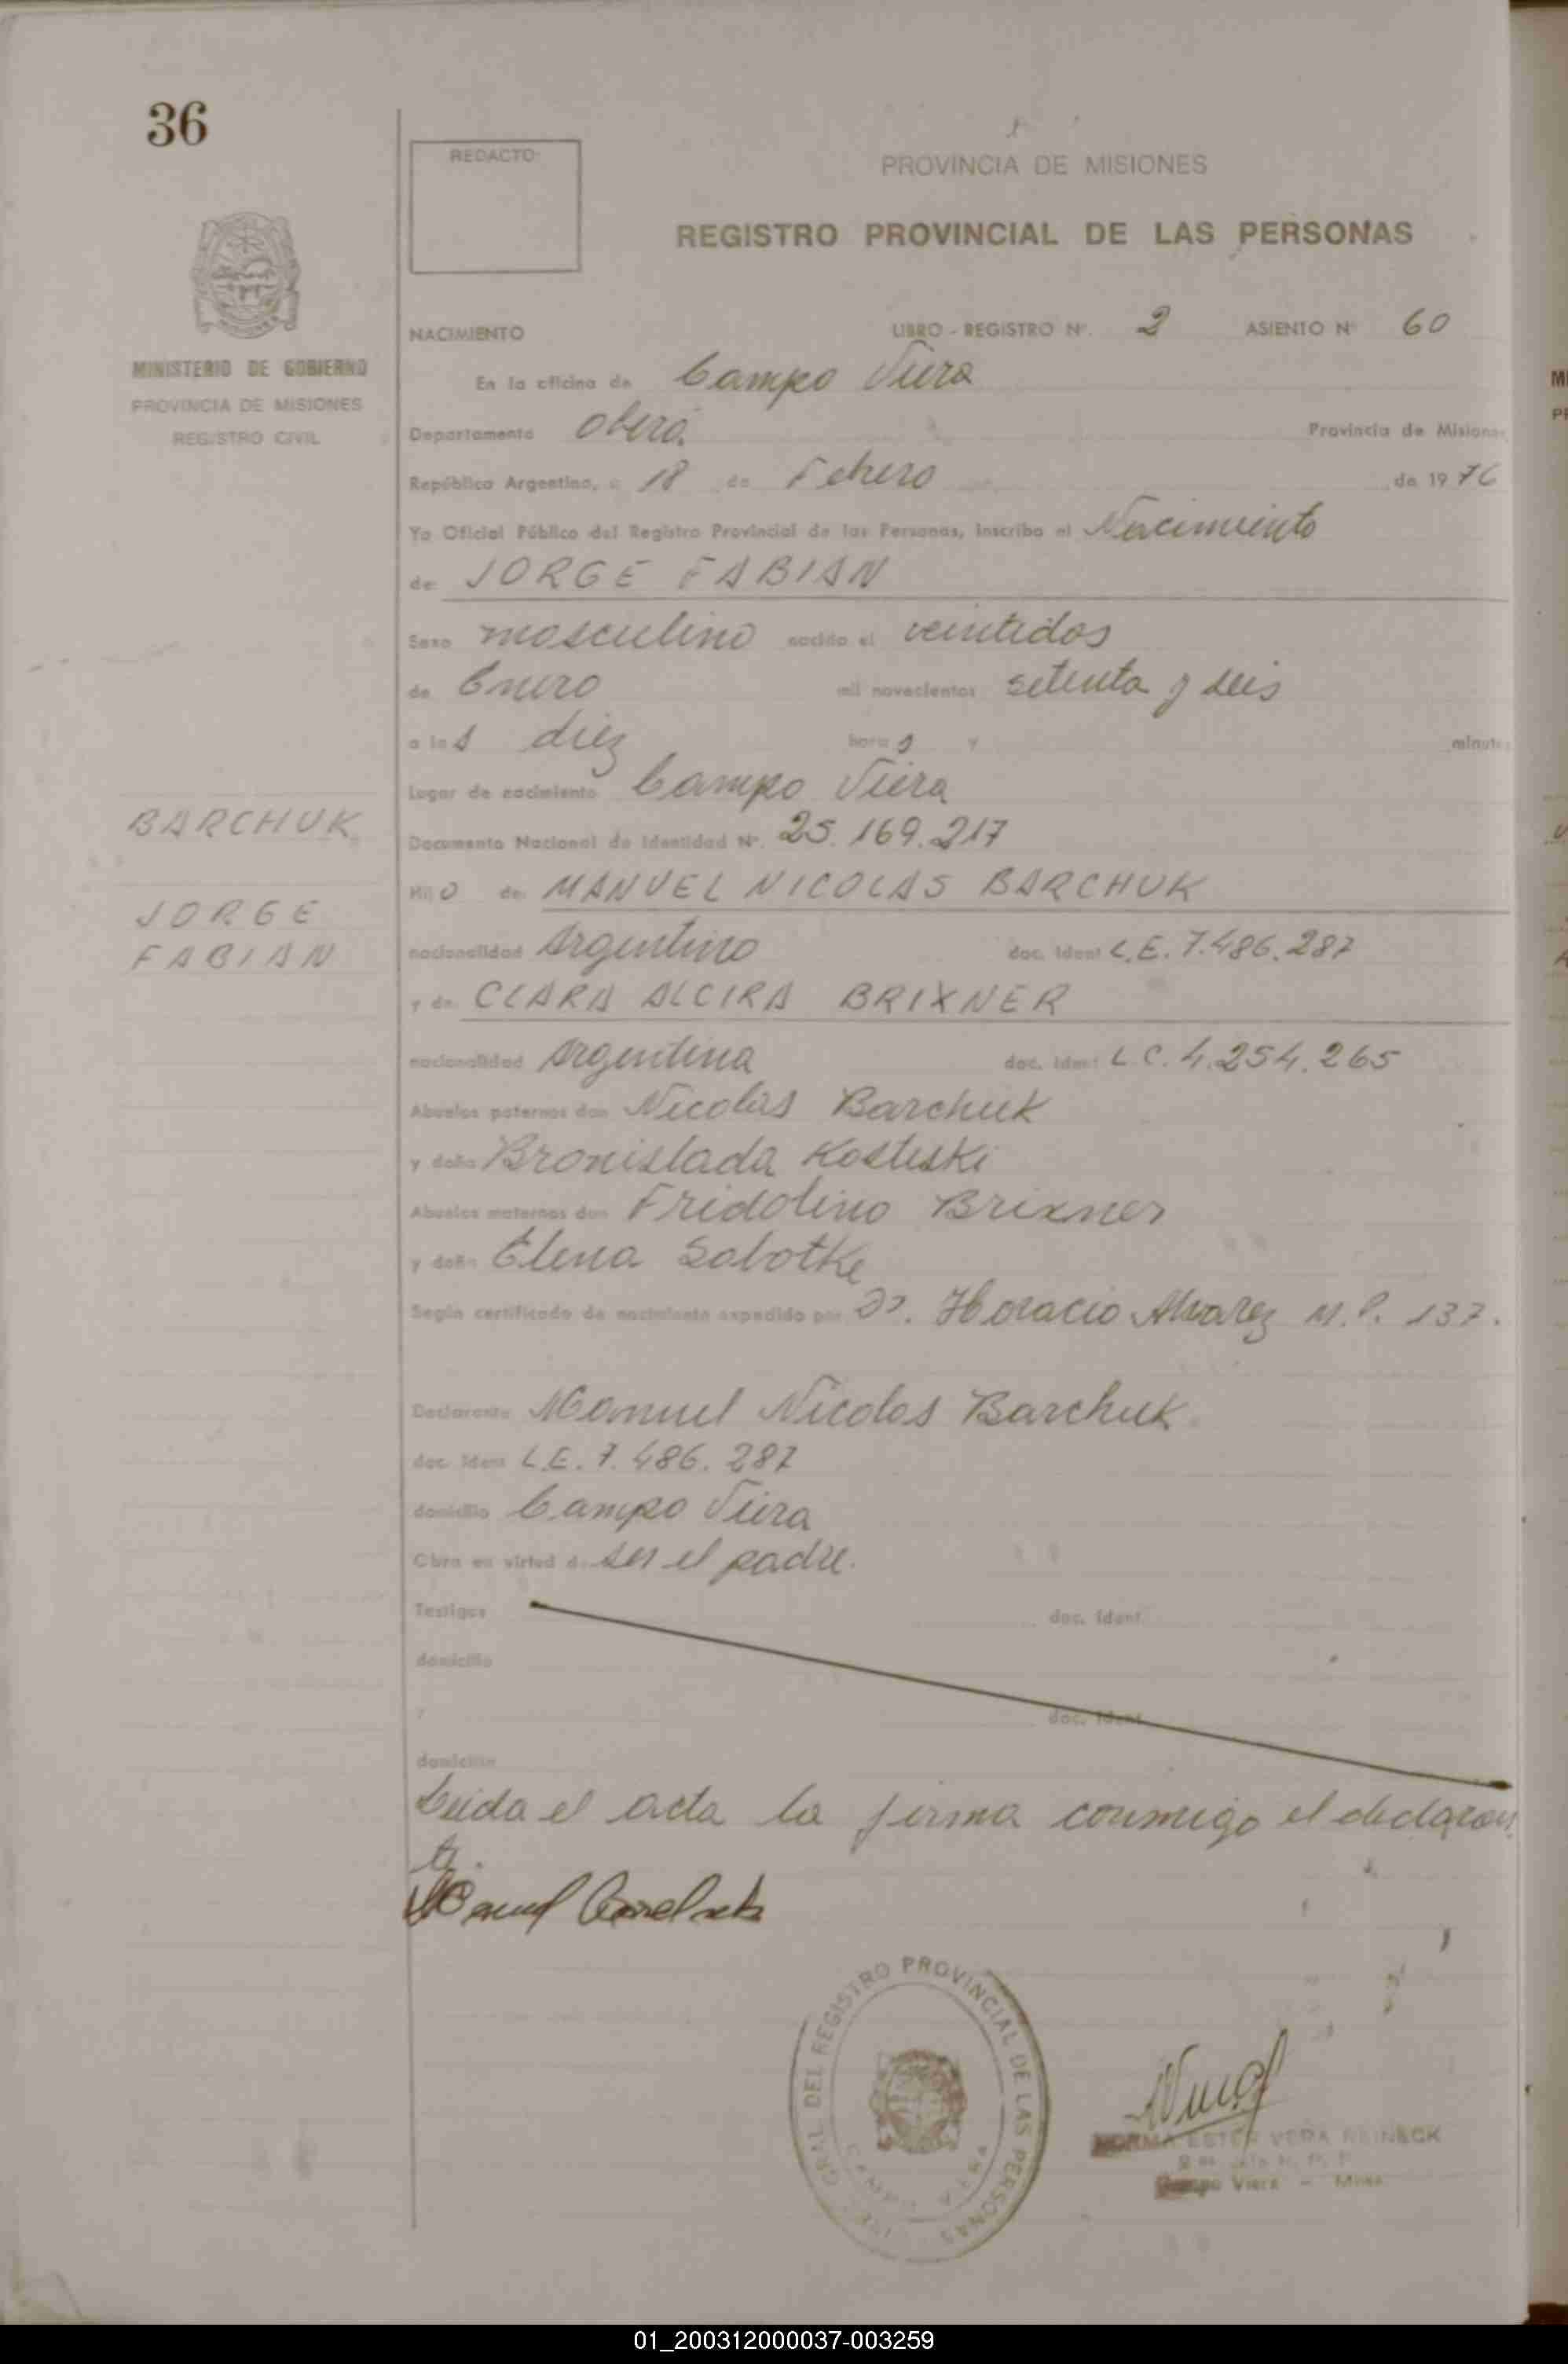 36
REDACTO
PROVINCIA DE MISIONES
REGISTRO PROVINCIAL DE LAS PERSONAS
MINISTERIO DE GOBIERNO
PROVINCIA DE MISIONES
REGISTRO CIVIL
NACIMIENTO LIBRO - REGISTRO Nº. 2 ASIENTO Nº 60
En la oficina de Campo Viera
Departamento Oberá. Provincia de Misiones
República Argentina, a 18 de Febrero de 1976
Yo Oficial Público del Registro Provincial de las Personas, inscribo el Nacimiento
de JORGE FABIAN
Sexo masculino nacido el veintidos
de Enero mil novecientos setenta y seis
a las diez horas y minutos
Lugar de nacimiento Campo Viera
BARCHUK
Documento Nacional de Identidad Nº. 25.169.217
Hijo de MANUEL NICOLAS BARCHUK
JORGE
FABIAN
nacionalidad Argentino doc. Ident L.E. 7.486.287
y de CLARA ALCIRA BRIXNER
nacionalidad Argentina doc. Ident L.C. 4.254.265
Abuelos paternos don Nicolás Barchuk
y doña Bronislada Kosteski
Abuelos maternos don Fridolino Brixner
y doña Elena Sabotke
Según certificado de nacimiento expedido por Dr. Horacio Alvarez M.P. 137.
Declarante Manuel Nicolas Barchuk
doc. Ident L.E. 7.486.287
domicilio Campo Viera
Obra en virtud de ser el padre.
Testigos doc. Ident.
domicilio
y doc. Ident.
domicilio
Leida el acta la firma conmigo el declaran
te.
GRAL. DEL REGISTRO PROVINCIAL DE LAS PERSONAS
CAMPO VIERA
NORMA ESTER VERA REINECK
Campo Viera - Mnes
01_200312000037-003259